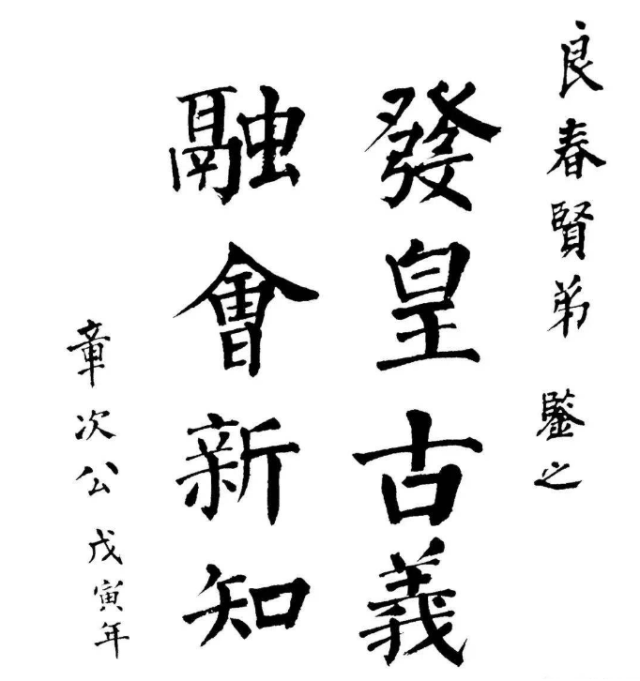 良春賢弟 鋻之
發皇古義
融會新知
章次公 戊寅年